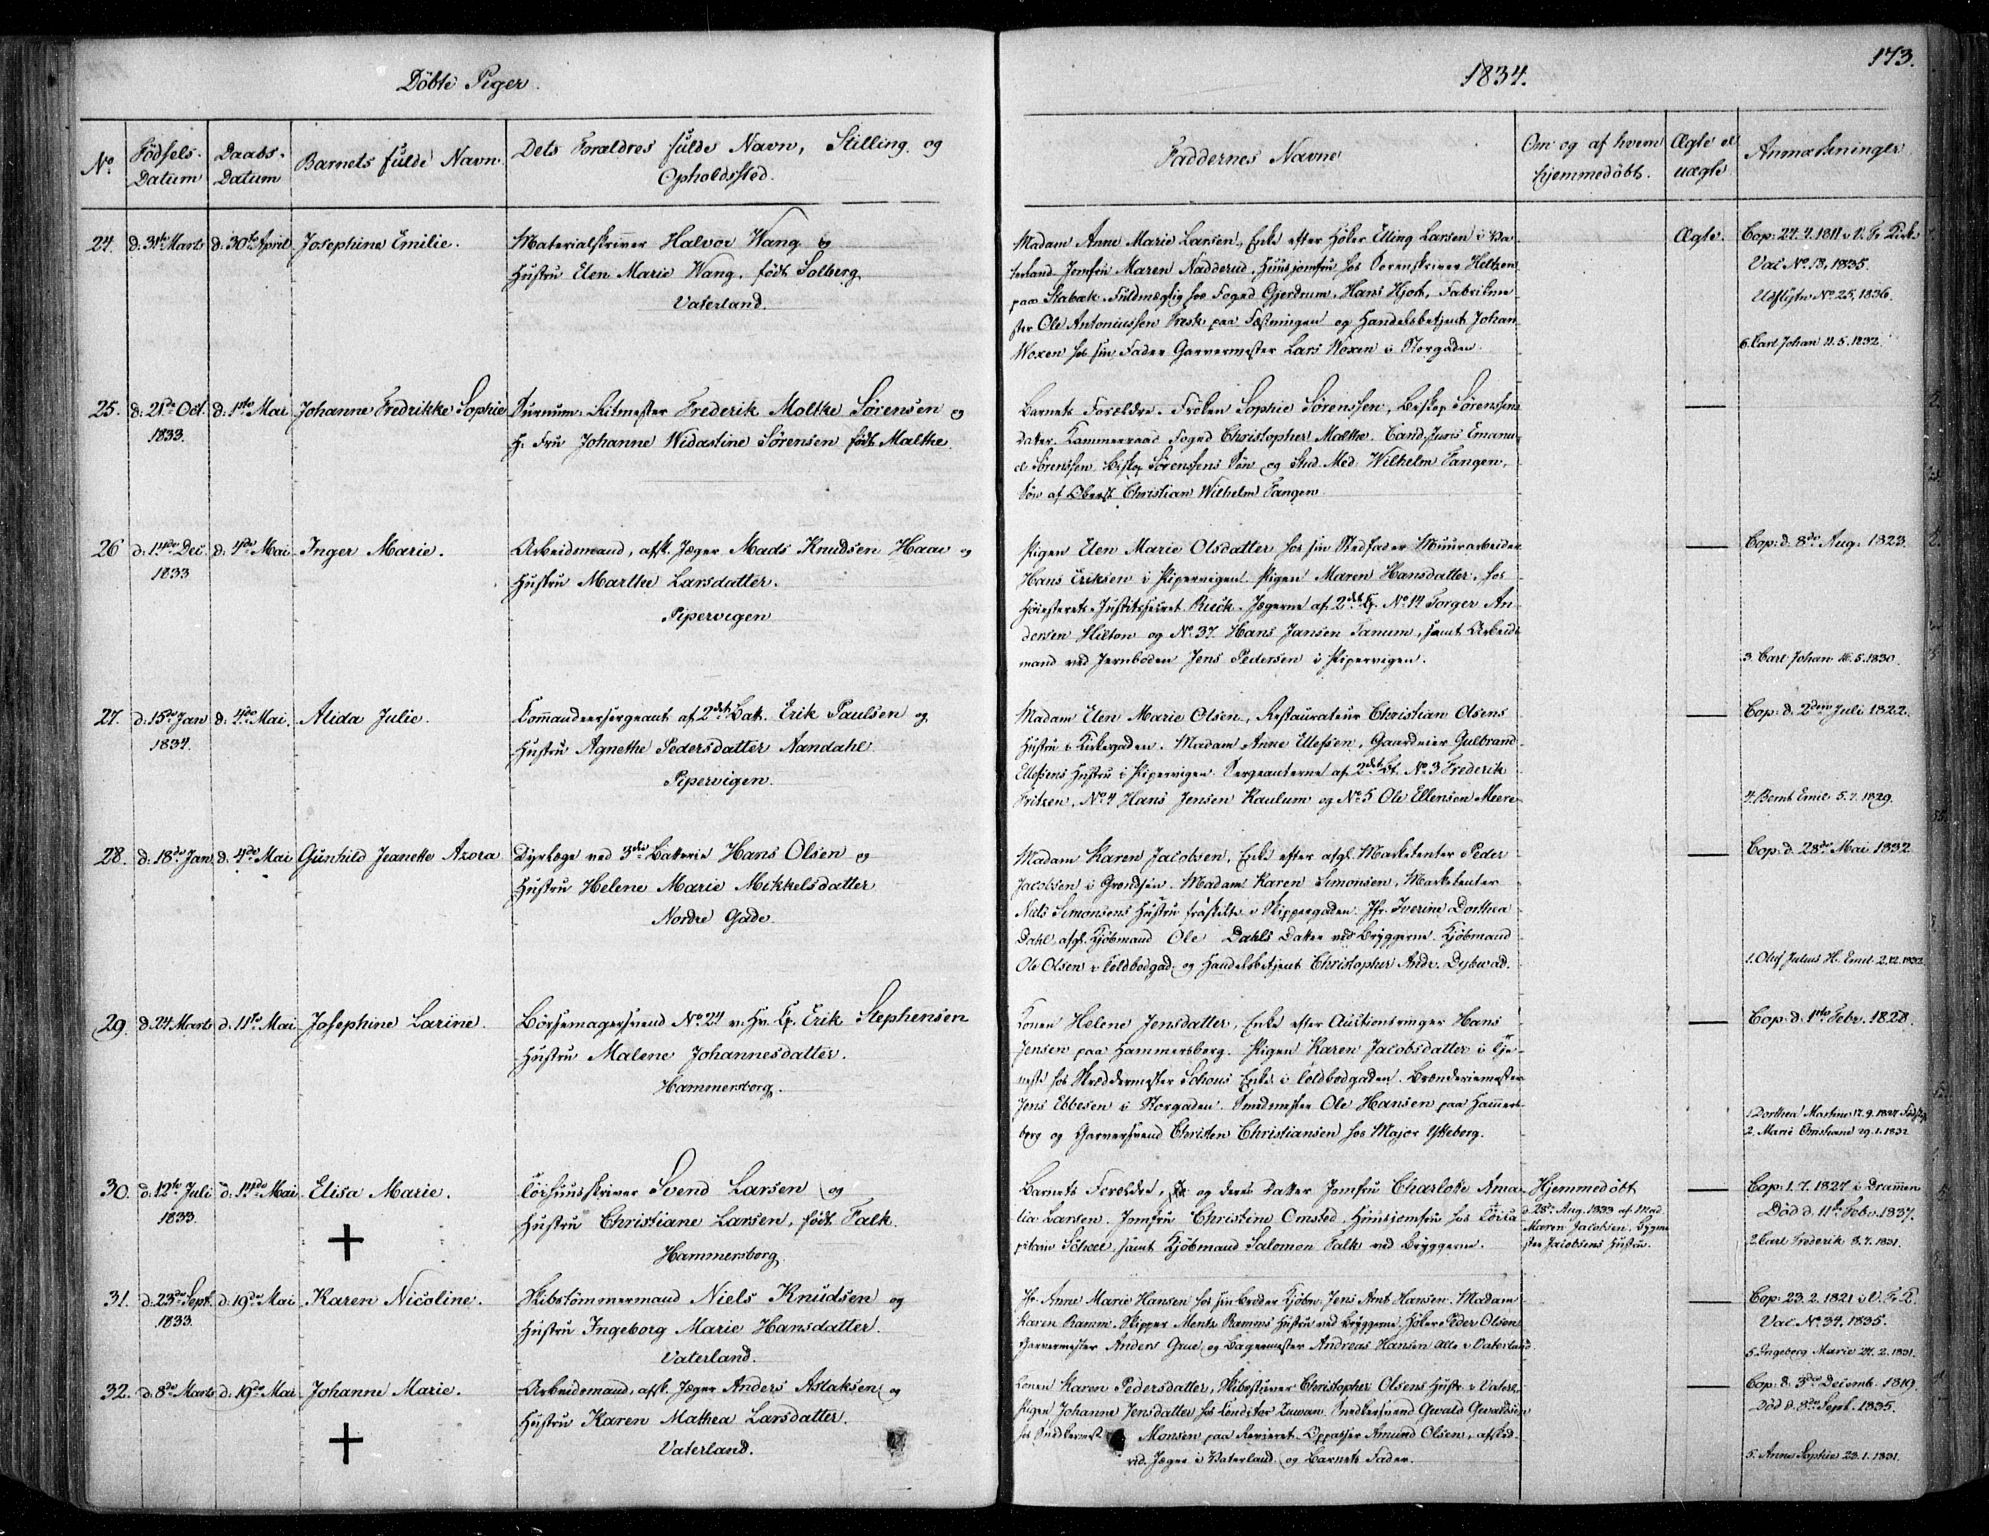 Döbte Piger.
1834.
173.
No.
Födsels-
Datum
Daabs-
Datum
Barnets fulde Navn
Dets Forældres fulde Navn, Stilling og
Opholdssted.
Faddernes Navne
Om og af hvem
hjemmedöbt.
Ægte el
uægte
Anmærkninger
24. d: 31te Marts d: 30te April Josephine Emilie.
Materialskriver Halvor Wang og
Hustru Elen Marie Wang, födt Solberg
Vaterland.
Madam Anne Marie Larsen, Enke efter Höker Elling Larsen i Va-
terland. Jomfru Maren Nadderud, Huusjomfru hos Sorenskriver Heltzen
paa Stabæk. Fuldmægtig hos Foged Gjerdrum, Hans Hjort, Fabrikme-
ster Ole Antoniussen Fresk paa Fæstningen og Handelsbetjent Johan
Woxen hos sin Fader Garvermester Lars Woxen i Storgaden.
Ægte.
Cop: 24.4.1811 i V. Fr. Kirke
Vac No. 13, 1835.
Udflytn No. 25, 1836.
6. Carl Johan 11.5.1832.
25. d: 21de Oct. d: 1ste Mai Johanne Fredrikke Sophie
1833.
Surnum. Ritmester Frederik Moltke Sörensen og
H. Fru Johanne Widastine Sörensen födt Malthe.
Barnets Forældre. Fröken Sophie Sörenssen, Biskop Sörenssens
dater. Kammerraad Foged Christopher Malthe. Cand. Juris Emanu-
el Sörenssen Biskop Sörenssens Sön og Stud. Med. Wilhelm Fangen,
Sön af Oberst Christian Wilhelm Fangen
26 d: 14de Dec d: 4de Mai Inger Marie.
1833
Arbeidsmand, afsk. Jæger Mads Knudsen Haav og
Hustru Marthe Larsdatter.
Pipervigen
Pigen Elen Marie Olsdatter hos sin Stedfader Muurarbeider
Hans Eriksen i Pipervigen. Pigen Maren Hansdatter, hos
Höiesterets-Justitssecret. Rieck. Jægerne af 2det Cp. No. 14 Torger An-
dersen Hilton og No. 37 Hans Jansen Tanum, samt Arbeids-
mand ved Jernboden Jens Pedersen i Pipervigen.
Cop: d. 8de Aug. 1823.
3. Carl Johan 16.5.1830.
27. d: 15de Jan d: 4de Mai. Alida Julie.
1834.
Commandeersergeant af 2det Bat. Erik Paulsen og
Hustru Agnethe Pedersdatter Aandahl
Pipervigen.
Madam Elen Marie Olsen, Restaurateur Christian Olsens
Hustru i Kirkegaden. Madam Anne Ellefsen, Gaardeier Gulbrand
Ellefsens Hustru i Pipervigen. Sergeanterne af 2det Bt. No. 3 Frederik
Fritzen, No. 4 Hans Jensen Kaulum og No. 5 Ole Ellensen Meere
Cop: d. 2den Juli 1822.
4. Bernt Emil 5.7.1829.
28. d: 18de Jan d: 4de Mai Gunhild Jeanette Azora
Dyrlæge ved 3die Batterie Hans Olsen og
Hustru Helene Marie Mikkelsdatter
Nordre Gade
Madam Karen Jacobsen, Enke efter afgl. Marketenter Peder
Jacobsen i Grændsen. Madam Karen Simonsen, Marketenter
Niels Simonsens Hustru fraskilte i Skippergaden. Jfr. Iverine Dorthea
Dahl, afgl. Kjöbmand Ole Dahls Datter ved Bryggerne. Kjöbmand
Ole Olsen i Toldbodgad: og Handelsbetjent Christopher Andr. Dybwad.
Cop: d. 28de Mai 1832
1. Olof Julius H. Emil 2.12.1832
29. d. 24 Marts d. 11te Mai Josephine Larine.
Börsemagersvend No. 24 v. Hv. Cp. Erik Stephensen
Hustru Malene Johannesdatter.
Hammersborg.
Konen Helene Jensdatter, Enke efter Auctionsringer Hans
Jensen paa Hammersberg. Pigen Karen Jacobsdatter i Tje-
neste hos Skreddermester Schous Enke i Toldbodgaden. Brænderiemester
Jens Ebbesen i Storgaden. Smedmester Ole Hansen paa Hammers-
berg og Garversvend Christen Christiansen hos Major Ytteborg.
Cop: d. 1ste Febr. 1828.
1. Dorthea Martine 17.9.1827
2. Marie Christiane 29.1.1832
30. d. 12te Juli d. 14de Mai Elisa Marie.
1833.
Törhuusskriver Svend Larsen og
Hustru Christiane Larsen, födt Falk.
Hammersborg
Barnets Forældre, og deres Datter Jomfru Charlotte Ama-
lia Larsen. Jomfru Christine Omsted, Huusjomfru hos
pitain Scheel. samt Kjöbmand Salomon Falk ved Bryggerne.
Hjemmedöbt
d. 28de Aug. 1833 af Mad.
Maren Jacobsen, Bygme-
ster Jacobsens Hustru.
Cop: 1.7.1827 i Drammen
Död d. 11te Febr. 1837.
2. Carl Frederik 8.7.1831.
31. d: 23de Sept. d: 19de Mai Karen Nicoline.
1833.
Skibstömmermand Niels Knudsen og
Hustru Ingeborg Marie Hansdatter.
Vaterland.
Jfr. Anne Marie Hansen hos sin Broder Kjöbm. Jens Arnt Hansen. Madam
Karen Ramm, Skipper Mentz Ramms Hustru ved Bryggerne. Höker Peder Olsen
Garvermester Anders Grue, og Bagermester Andreas Hansen alle i Vaterland
Cop: 23.2.1821 i V. Fr. K.
Vac No. 34. 1835.
5. Ingeborg Marie 24.2.1831.
32. d. 8de Marts d: 19de Mai Johanne Marie.
Arbeidsmand, afsk. Jæger Anders Aslaksen og
Hustru Karen Mathea Larsdatter.
Vaterland.
Konen Karen Pedersdatter, Skibsstuver Christopher Olsens Hustr. i Vaterl.
Pigen Johanne Jensdatter hos Conditor Zuwan. Snedkersvend Gwald Gwaldsen
hos Snedkermest. Monsen paa Revieret. Oppasser Amund Olsen, afsked.
vid. Jæger i Vaterland og Barnets Fader.
Cop: d. 3de Decemb. 1819.
Död d. 8de Sept. 1835.
5. Anne Sophie 23.1.1831.